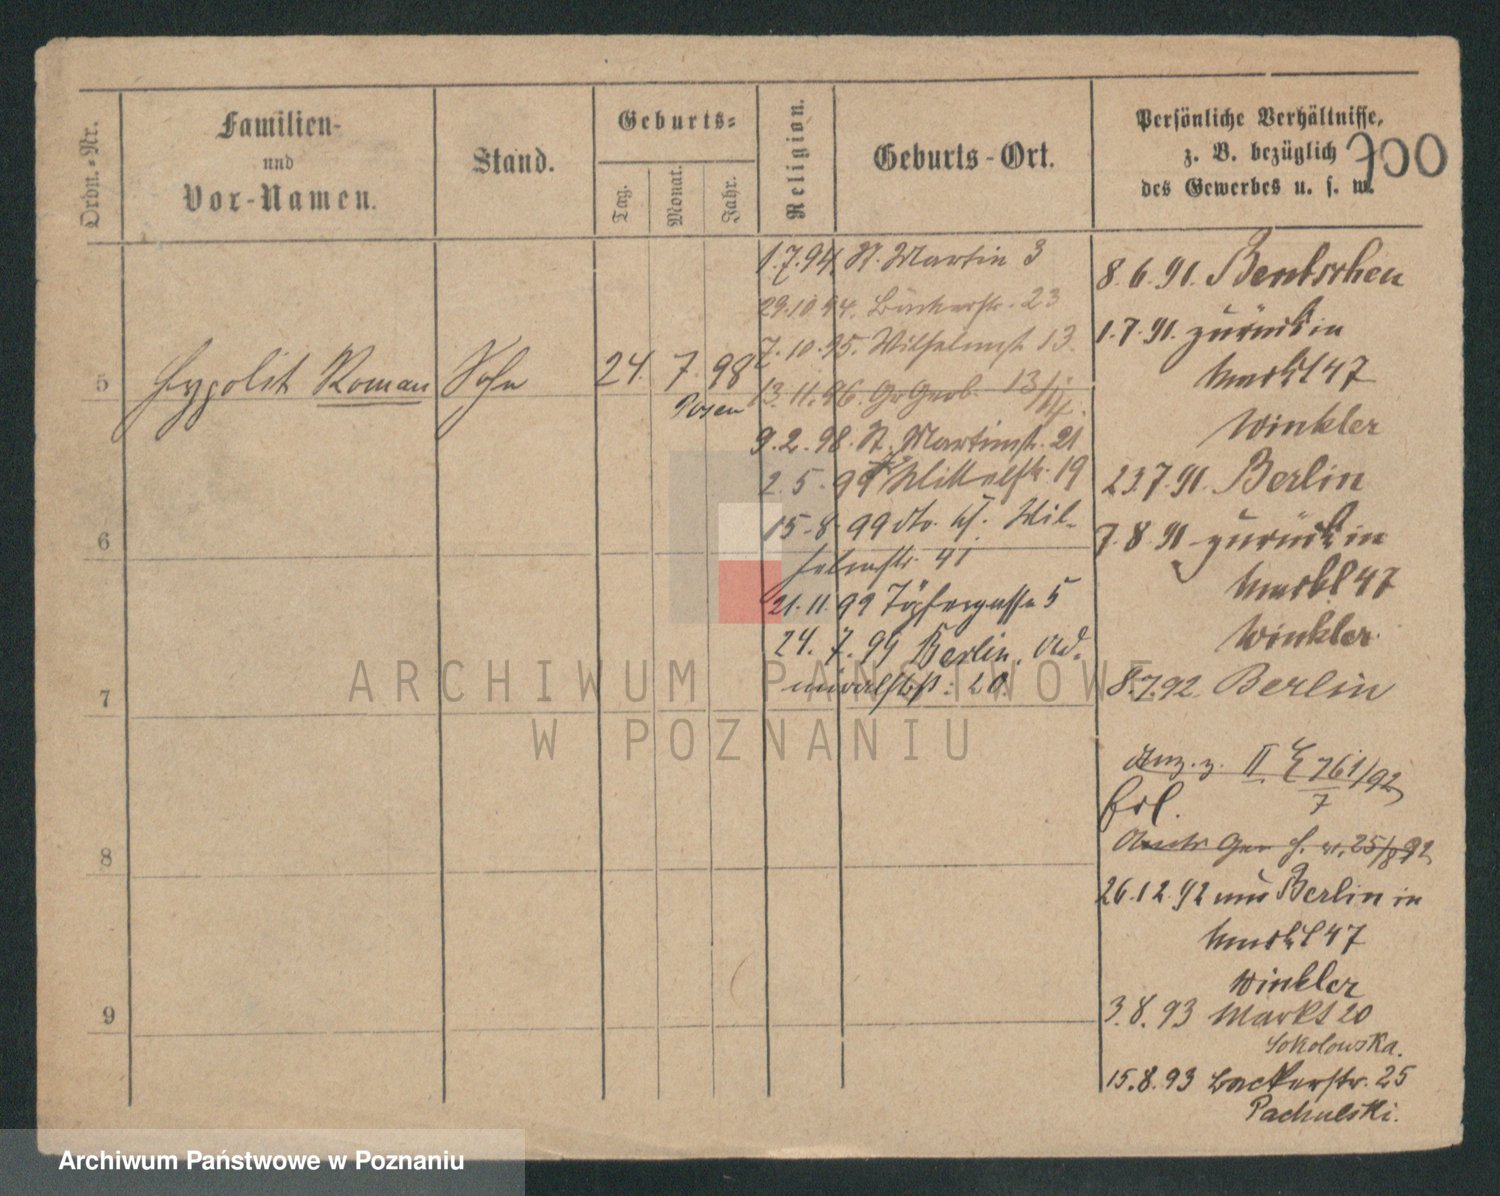 Ordn.-Nr.
Familien-
und
Vor-Namen.
Stand.
Geburts-
Tag.
Monat.
Jahr.
Religion.
Geburts-Ort.
Persönliche Verhältnisse,
z. B. bezüglich
des Gewerbes u. s. w.
700
5
Hypolit Roman
Sohn
24. 7. 98
Posen
6
7
8
9
1.7.94. St. Martin 3
29.10.94. Bäckerstr. 23
7.10.95. Wilhelmst. 13.
13.11.96. Gr Gerb. 13/14.
9.2.98. St. Martinst. 21
2.5.99 Mittelstr. 19
15.8.99 dto. Wil-
helmstr. 41
21.11.99 Töpfergasse 5
24.7.99 Berlin. Ad-
miralstr. 20.
8.6.91. Bentschen
1.7.91. zurück in
Markt 47
Winkler
23.7.91. Berlin
7.8.91 zurück in
Markt 47
Winkler
8.7.92 Berlin
Anz. z. II 761/92
7
Erl.
25/8 92
26.12.92 aus Berlin in
Markt 47
Winkler
3.8.93 Markt 20
Sokolowska.
15.8.93 Backerstr. 25
Pachulski.
ARCHIWUM PAŃSTWOWE
W POZNANIU
Archiwum Państwowe w Poznaniu